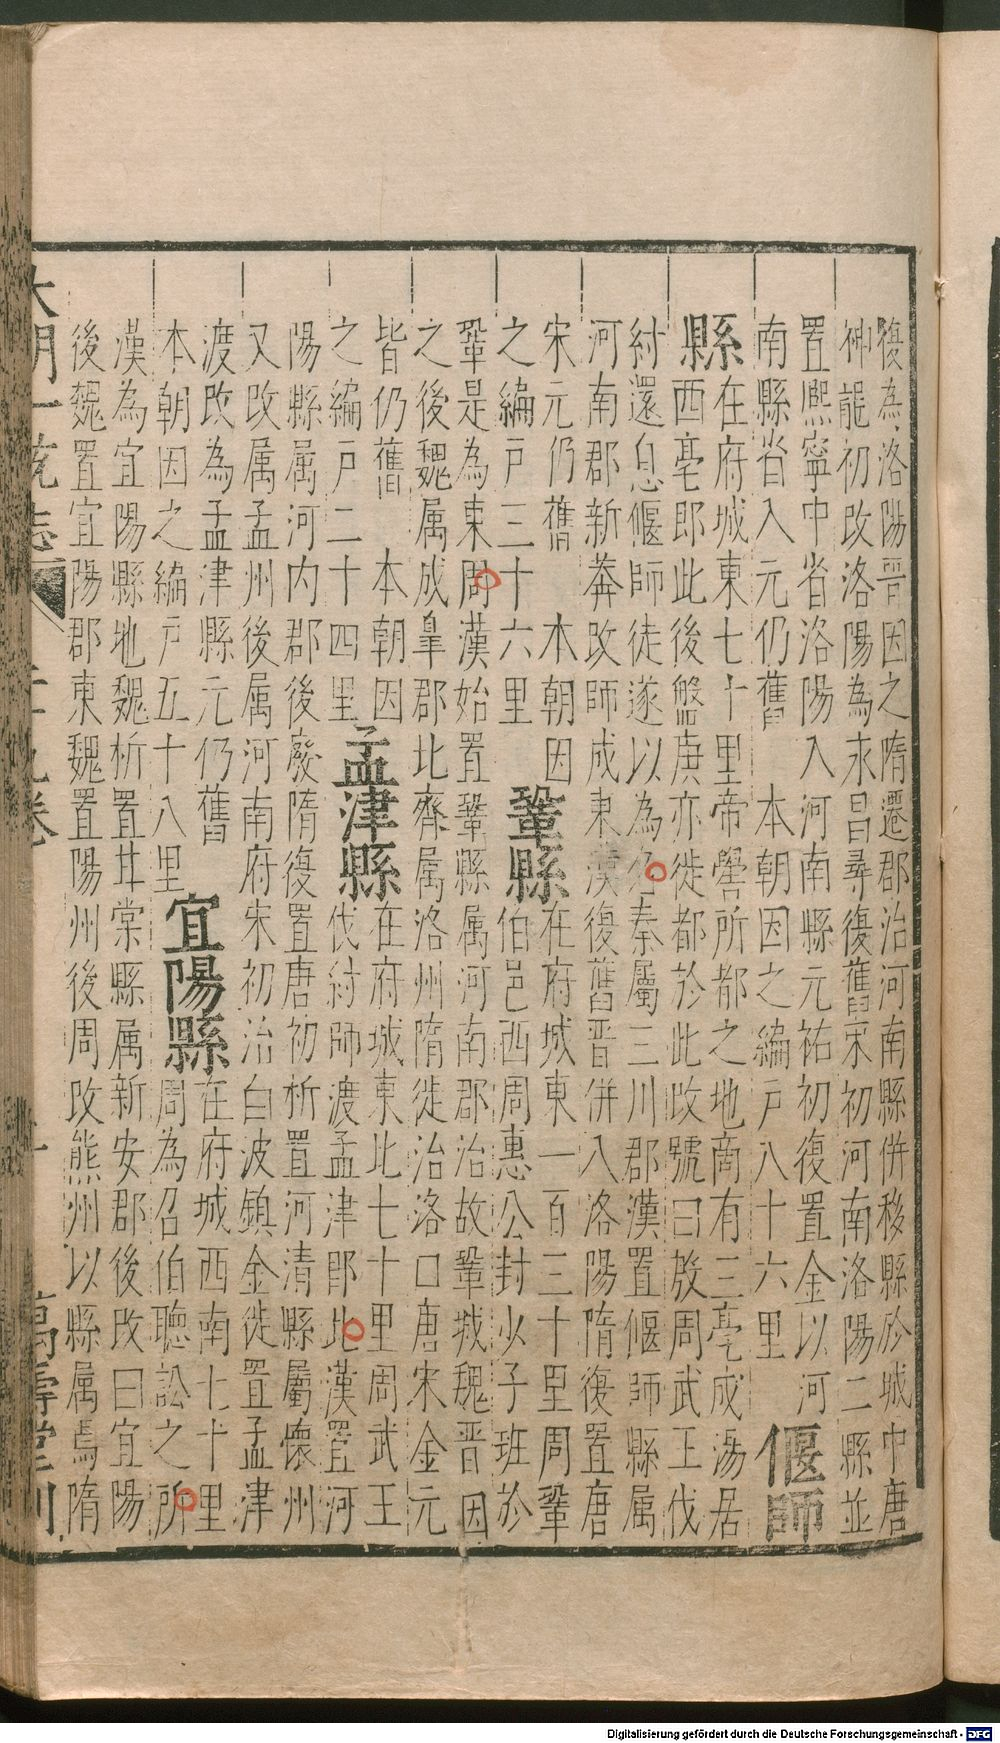 復為洛陽晉因之隋遷郡治河南縣併移縣於城中唐
神龍初改洛陽為永昌尋復舊宋初河南洛陽二縣並
置熈寧中省洛陽入河南縣元祐初復置金以河
南縣省入元仍舊　本朝因之編戸八十六里　偃師
縣在府城東七十里帝嚳所都之地商有三亳成湯居
西亳即此後盤庚亦徙都於此改號曰殷周武王伐
紂還息偃師徒遂以為名秦屬三川郡漢置偃師縣属
河南郡新莽改師成東漢復舊晋併入洛陽隋復置唐
宋元仍舊　本朝因
之編戸三十六里　鞏縣在府城東一百三十里周鞏
伯邑西周惠公封少子班於
鞏是為東周漢始置鞏縣属河南郡治故鞏城魏晋因
之後魏属成臯郡北齊属洛州隋徙治洛口唐宋金元
皆仍舊　本朝因
之編戸二十四里　孟津縣在府城東北七十里周武王
伐紂師渡孟津即此漢置河
陽縣属河内郡後廢隋復置唐初析置河清縣屬懷州
又改属孟州後属河南府宋初治白波鎮金徙置孟津
渡改為孟津縣元仍舊
本朝因之編戸五十八里　宜陽縣在府城西南七十里
周為召伯聽訟之所
漢為宜陽縣地魏析置甘棠縣属新安郡後改曰宜陽
後魏置宜陽郡東魏置陽州後周改熊州以縣属焉隋
大明一統志　二十九卷　十　萬壽堂刊
Digitalisierung gefördert durch die Deutsche Forschungsgemeinschaft - DFG